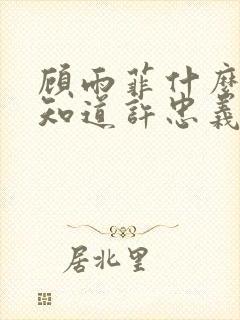 顾雨菲什麼
知道許忠義
居北里